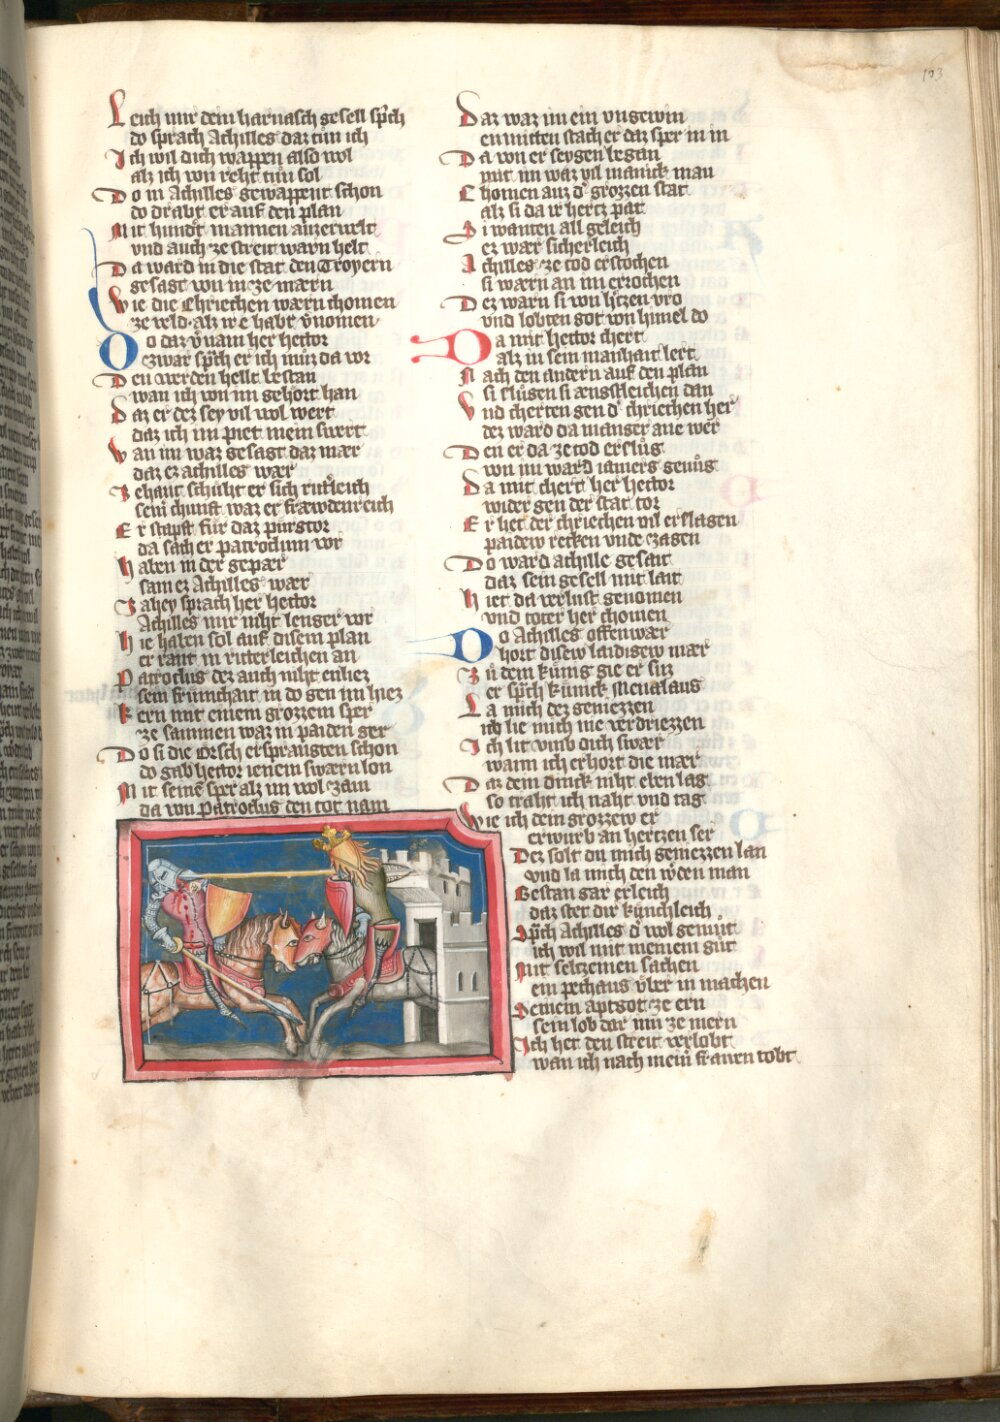 103
Leich mir dein harnasch gesell sp̄ch
do sprach Achilles daz tun ich
Ich wil dich wappen also wol
alz ich von reht tun sol
Do in Achilles gewappent schon
do drabt er auf den plan
Mit hundͤt mannen auzerwelt
vnd auch ze streit warn helt
Da ward in die stat den Troyern
gesagt von in ze mærn
Wie die Chriechen wærn chomen
ze veld alz ir e habt v̄nomen
Do daz v̄nam her hector
Ezwar sp̄ch er ich muz da vor
Den werden hellt bestan
wan ich von im gehort han
Daz er dez sey vil wol wert
daz ich im piet mein swert
Wan im waz gesagt daz mær
daz ez achilles wær
Zehant schuht er sich rittͤleich
sein chunst waz er frawdenreich
Er stapft fur daz purgtor
da sach er patroclum vor
Halten in der gepær
sam ez Achilles wær
Zahey sprach her hector
Achilles mir niht lenger vor
Hie halten sol auf disem plan
er rant in ritterleichen an
Patroclus dez auch niht enliez
sein frumchait in do gen im hiez
Kern mit einem grozzem sper
ze sammen waz in paiden ger
Do si die orsch ersprangten schon
do gab hector ienem swærn lon
Mit seinē sper alz im wol zam
da von Patroclus den tot nam
Daz waz im ein vngewin
enmitten stach er daz sper in in
Da von er seygen began
mit im waz vil manick man
Chomen auz dͤ grozzen stat
alz si da ir hertz pat
Si wanten all geleich
ez wær sicherleich
Achilles ze tod erstochen
si wærn an im errochen
Dez warn si von hͤtzen vro
vnd lobten got von himel do
Da mit hector chert
alz in sein manhait lert
Nach den andern auf den plan
si slugen si ængstleichen dan
Vnd cherten gen dͤ chriechen her
dez ward da maniger ane wer
Den er da ze tod erslug
von im ward iamers genug
Da mit chert her hector
wider gen der stat tor
Er het der chriechen vil erslagen
paidew recken vnde czagen
Do ward achille gesait
daz sein gesell mit lait
Hiet da verlust genomen
vnd toter her chomen
Do Achilles offenwær
hort disew laidigew mær
Zu dem kunig gie er siz
er sp̄ch kunick Menalaus
La mich dez geniezzen
ich lie mich nie verdriezzen
Ich lit vmb dich swær
wann ich erhort die mær
Daz dem dinck niht eben lag
so traht ich naht vnd tag
Wie ich dein grozzew er
erwurb an hertzen ser
Dez solt du mich geniezzen lan
vnd la mich den w̄den man
Bestan gar erleich
daz stet dir kunchleich
Sp̄ch Achilles dͤ wol gemut
ich wil mit meinem gut
Mit seltzemen sachen
ein petehaus vber in machen
Deinem aptgot ze ern
sein lob dar inn ze mern
Ich het den streit verlobt
wan ich nach meinͤ frawen tobt